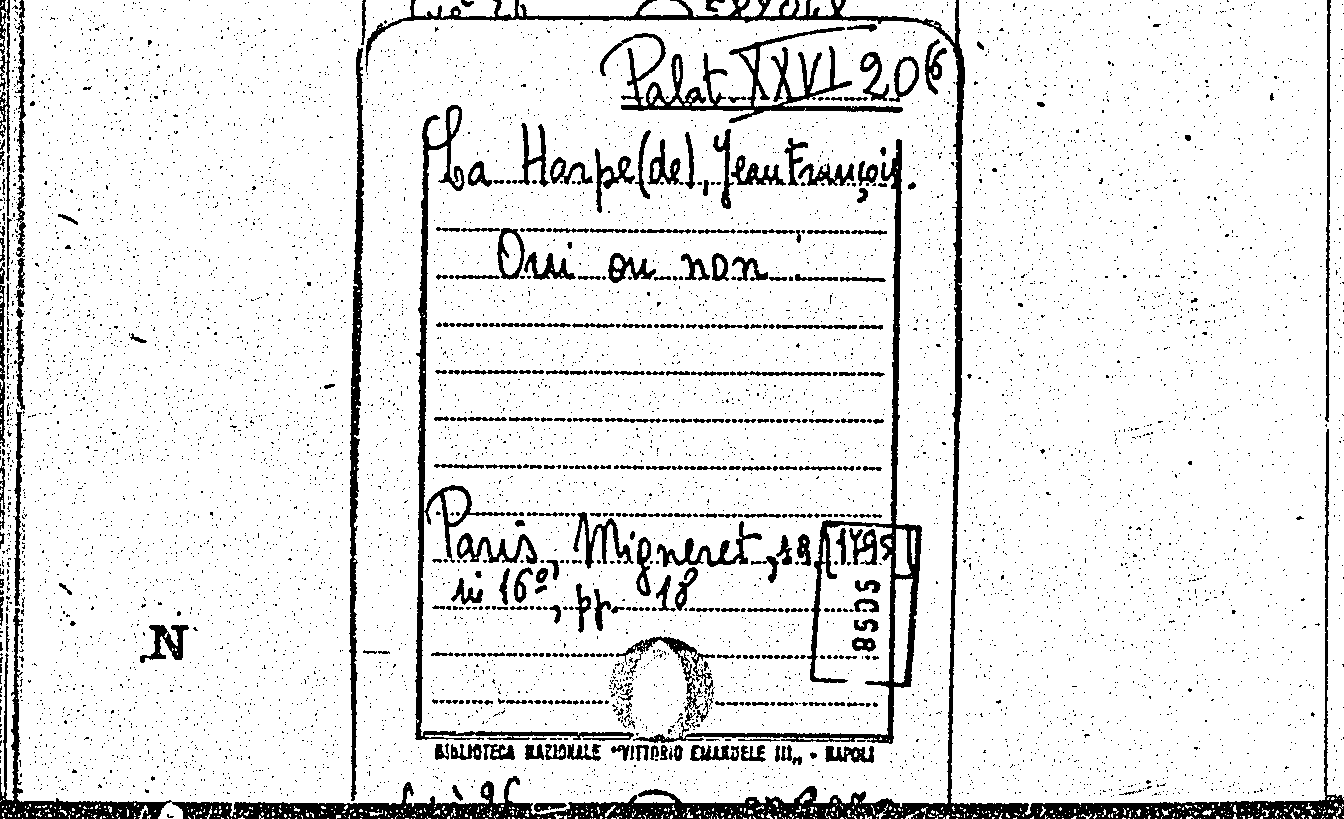 Palat. XXVI 20 (6
La Harpe (de), Jean François.
Oui ou non.
Paris, Migneret, s.a. [1795]
in 16º, pp. 18
8505
N
BIBLIOTECA NAZIONALE "VITTORIO EMANUELE III„ - NAPOLI